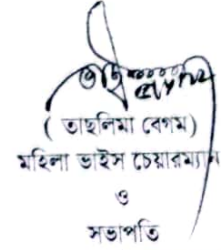 ( তাছলিমা বেগম)
মহিলা ভাইস চেয়ারম্যান
ও
সভাপতি